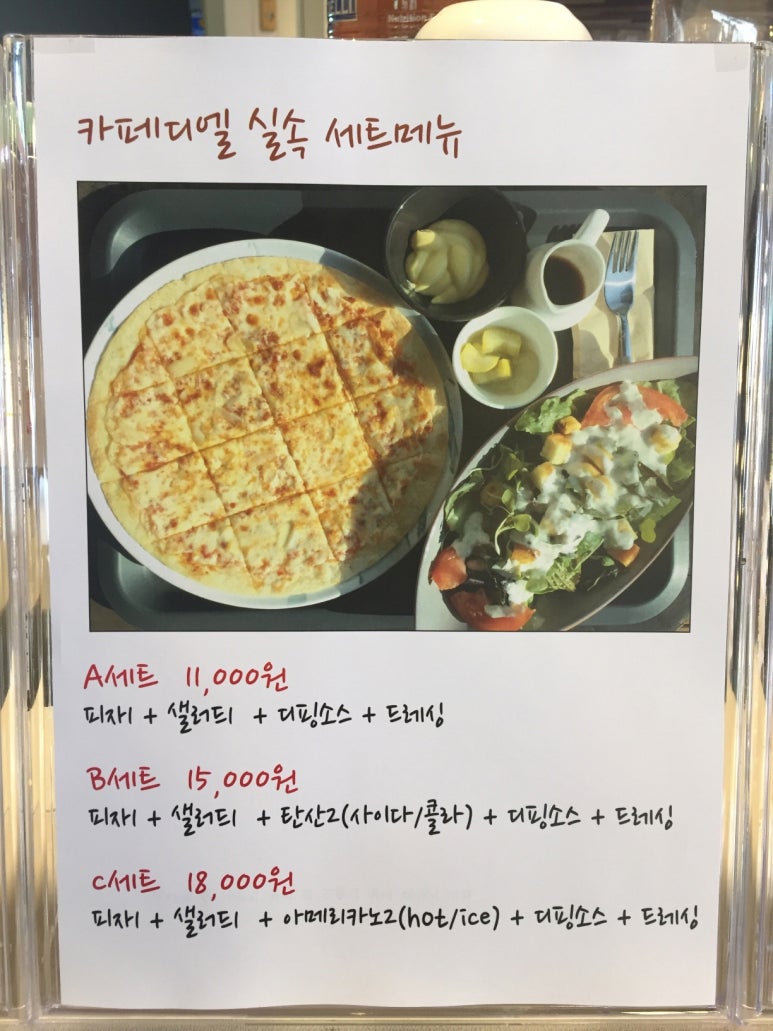 ELLI
Nutrition
카페디엘 실속 세트메뉴
A세트 11,000원
피자1 + 샐러드1 + 디핑소스 + 드레싱
B세트 15,000원
피자1 + 샐러드1 + 탄산2(사이다/콜라) + 디핑소스 + 드레싱
C세트 18,000원
피자1 + 샐러드1 + 아메리카노2(hot/ice) + 디핑소스 + 드레싱